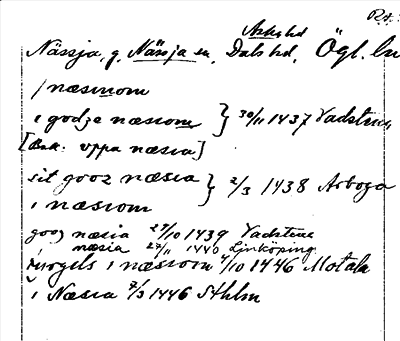 Rä:
Askshd
Nässja, g. Nässja sn, Dals hd, Ögl. ln
/ næsinom
i godze næsiom } 30/11 1437 Vadstena
[Bak: uppa næsia]
sit gooz næsia } 2/3 1438 Arboga
i næsiom
gooz næsia 27/10 1439 Vadstena
i næsia 27/11 1440 Linköping
i næsiom 4/10 1446 Motala
i Næsia 7/3 1446 Sthlm